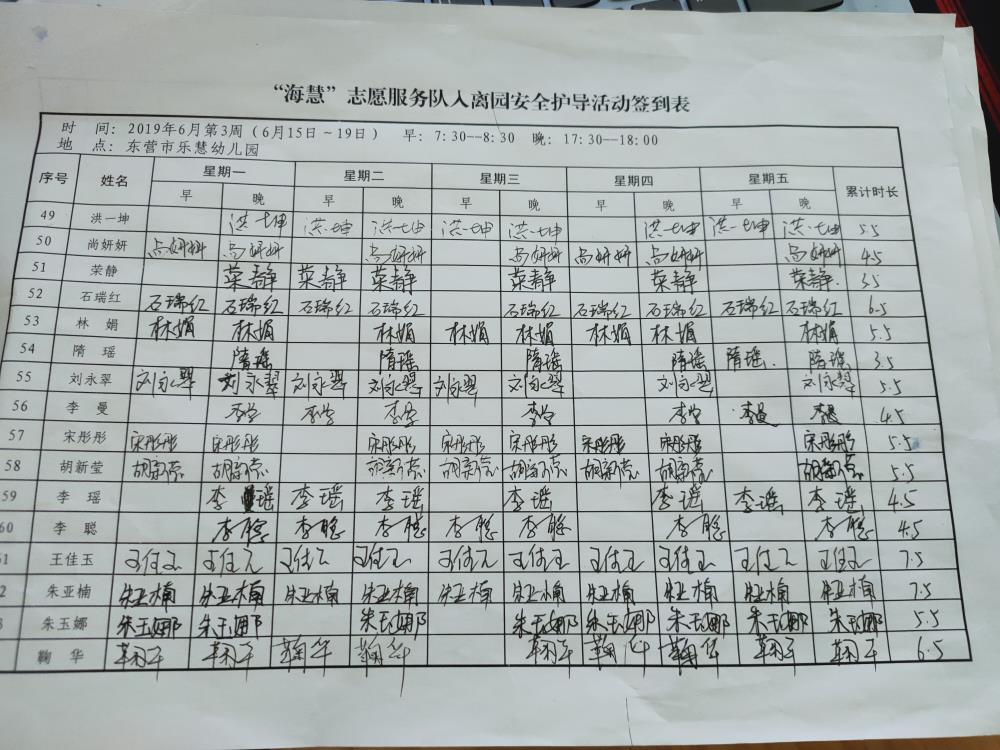 “海慧”志愿服务队入离园安全护导活动签到表
时 间: 2019年6月第3周（6月15日~19日） 早: 7:30--8:30 晚: 17:30--18:00
地 点: 东营市乐慧幼儿园
序号 姓名 星期一 星期二 星期三 星期四 星期五 累计时长
早 晚 早 晚 早 晚 早 晚 早 晚
49 洪一坤 洪一坤 洪一坤 洪一坤 洪一坤 洪一坤 洪一坤 洪一坤 洪一坤 5.5
50 尚妍妍 尚妍妍 尚妍妍 尚妍妍 尚妍妍 尚妍妍 尚妍妍 尚妍妍 4.5
51 荣静 荣静 荣静 荣静 荣静 荣静 荣静 3.5
52 石瑞红 石瑞红 石瑞红 石瑞红 石瑞红 石瑞红 石瑞红 石瑞红 石瑞红 石瑞红 6.5
53 林 娟 林娟 林娟 林娟 林娟 林娟 林娟 林娟 林娟 5.5
54 隋 瑶 隋瑶 隋瑶 隋瑶 隋瑶 隋瑶 隋瑶 3.5
55 刘永翠 刘永翠 刘永翠 刘永翠 刘永翠 刘永翠 刘永翠 刘永翠 刘永翠 5.5
56 李 曼 李曼 李曼 李曼 李曼 李曼 李曼 李曼 4.5
57 宋彤彤 宋彤彤 宋彤彤 宋彤彤 宋彤彤 宋彤彤 宋彤彤 宋彤彤 宋彤彤 5.5
58 胡新莹 胡新莹 胡新莹 胡新莹 胡新莹 胡新莹 胡新莹 胡新莹 胡新莹 5.5
59 李 瑶 李瑶 李瑶 李瑶 李瑶 李瑶 李瑶 李瑶 4.5
60 李 聪 李聪 李聪 李聪 李聪 李聪 李聪 李聪 4.5
1 王佳玉 王佳玉 王佳玉 王佳玉 王佳玉 王佳玉 王佳玉 王佳玉 王佳玉 王佳玉 王佳玉 7.5
2 朱亚楠 朱亚楠 朱亚楠 朱亚楠 朱亚楠 朱亚楠 朱亚楠 朱亚楠 朱亚楠 朱亚楠 朱亚楠 7.5
3 朱玉娜 朱玉娜 朱玉娜 朱玉娜 朱玉娜 朱玉娜 朱玉娜 朱玉娜 朱玉娜 5.5
鞠 华 鞠华 鞠华 鞠华 鞠华 鞠华 鞠华 鞠华 鞠华 鞠华 6.5